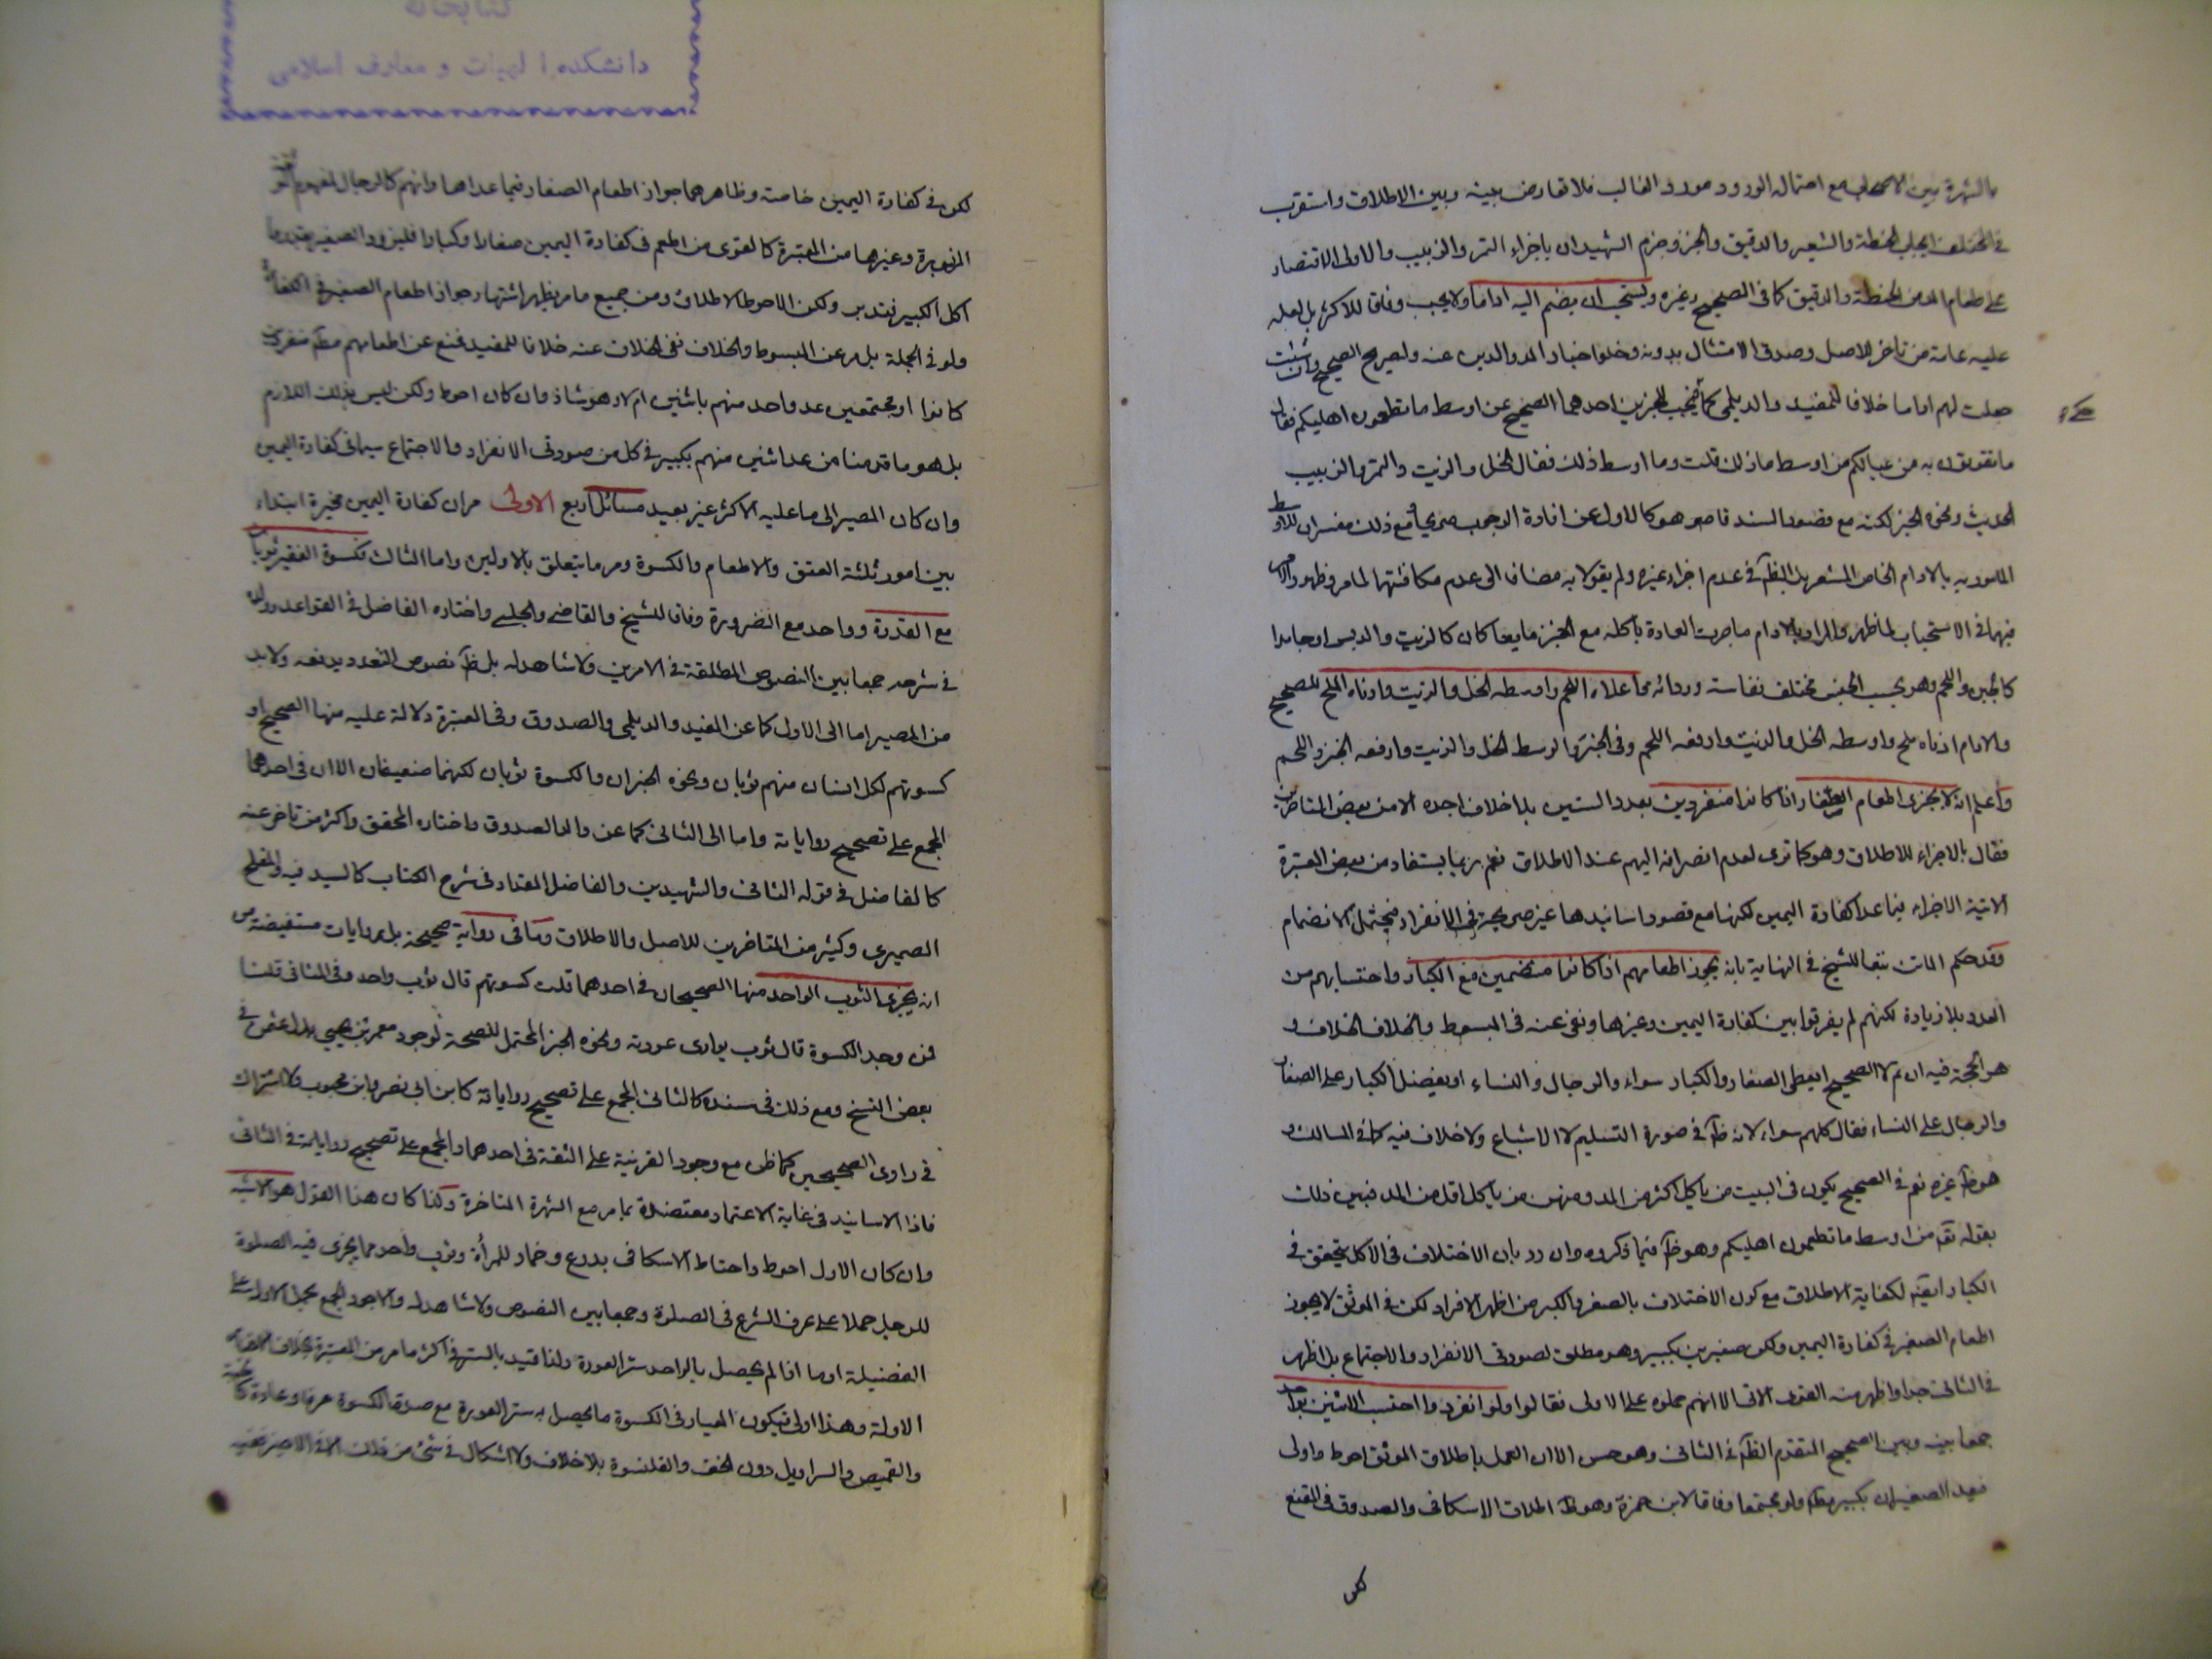 بالشهرة بين الاصحاب مع احتماله الورود مورد الغالب فلا تعارض بينه وبين الاطلاق واستقرب
في المختلف ايجاب الحنطة والشعير والدقيق والخبز وجزم الشهيدان باجزاء التمر والزبيب والاولى الاقتصار
على طعام المد من الحنطة والدقيق كما في الصحيح وغيره ويستحب ان يضم اليه اداما ولا يجب وفاقا للاكثر بل لعله
عليه عامة من تاخر للاصل وصدق الامتثال بدونه وخلو اخبار المد والمدين عنه ولصريح الصحيح وان شئت
جعلت لهم اداما خلافا للمفيد والديلمي فيجب للخبرين احدهما الصحيح عن اوسط ما تطعمون اهليكم فقال
ما تقوتون به من عيالكم من اوسط ما ذلك قلت وما اوسط ذلك فقال الخل والزيت والتمر والزبيب
الحديث ونحوه الخبر لكنه مع قصور السند قاصر هو كالاول عن افادة الوجوب صريحا ومع ذلك مفسران للاوسط
المامور به بالادام الخاص المشعر بل الظ في عدم اجزاء غيره ولم يقولا به مضافا الى عدم مكافئتهما لما مر وظهور
فيهما في الاستحباب لما ظهر والمراد بالادام ما جرت العادة باكله مع الخبز مايعا كان كالزيت والدبس او جامدا
كالجبن واللحم وهو بحسب الجنس مختلف نفاسته وردائه فاعلاه اللحم واوسطه الخل والزيت وادناه الملح للصحيح
والادام ادناه ملح واوسطه الخل والزيت وارفعه اللحم وفي الخبر والوسط الخل والزيت وارفعه الخبز واللحم
واعلم انه لا يجزى اطعام الصغار اذا كانوا منفردين بعدد الستين بلا خلاف اجده الا من بعض المتاخرين
فقال بالاجزاء للاطلاق وهو كما ترى لعدم انصرافه اليهم عند الاطلاق نعم ربما يستفاد من بعض المعتبرة
الاتية الاجزاء فيما عدا كفارة اليمين لكنها مع قصور اسانيدها غير صريحة في الانفراد فيحتمل الانضمام
فقد حكم الماتن تبعا للشيخ في النهاية بانه يجوز اطعامهم اذا كانوا منضمين مع الكبار واحتسابهم من
العدد بلا زيادة لكنهم لم يفرقوا بين كفارة اليمين وغيرها ونفى عنه في المبسوط والخلاف الخلاف و
هو الحجة فيه ان تم لا الصحيح ايعطى الصغار والكبار سواء والرجال والنساء او يفضل الكبار على الصغار
والرجال على النساء فقال كلهم سواء لانه ظ في صورة التسليم لا الاشباع ولا خلاف فيه كما في المسالك و
هو ظ غيره نعم في الصحيح يكون في البيت من ياكل اكثر من المد ومنهم من ياكل اقل من المد فبين ذلك
بقوله تعه من اوسط ما تطعمون اهليكم وهو ظ فيما ذكروه وان رد بان الاختلاف في الاكل يتحقق في
الكبار ايضه لكفاية الاطلاق مع كون الاختلاف بالصغر والكبر من اظهر الافراد لكن في الموثق لا يجوز
اطعام الصغير في كفارة اليمين ولكن صغيرين بكبير وهو مطلق لصورتى الانفراد والاجتماع بل اظهر
في الثانى جدا واظهر منه القوى الاتى الا انهم حملوه على الاولى فقالوا ولو انفردوا احتسب الاثنين بواحد
جمعا بينه وبين الصحيح المتقدم الظ في الثانى وهو حسن الا ان العمل باطلاق الموثق احوط واولى
فيعد الصغيران بكبير مط ولو مجتمعا وفاقا لابن حمزة وهو ظ اطلاق الاسكافى والصدوق في المقنع
لكن
كتابخانه
دانشكده الهيات و معارف اسلامى
لكن في كفارة اليمين خاصة وظاهرهما جواز اطعام الصغار فيما عداها وانهم كالرجال لمفهوم
المزبورة وغيرها من المعتبرة كالقوى من اطعم في كفارة اليمين صغارا وكبارا فليزود الصغير بقدر ما
اكل الكبير فتدبر ولكن الاحوط الاطلاق ومن جميع ما مر يظهر اشتهار جواز اطعام الصغير في الكفارة
ولو في الجملة بل مر عن المبسوط والخلاف نفى الخلاف عنه خلافا للمفيد فمنع عن اطعامهم مط منفردين
كانوا او مجتمعين عد واحد منهم باثنين ام لا وهو شاذ وان كان احوط ولكن ليس بذلك اللازم
بل هو ما قدمنا من عد اثنين منهم بكبير في كل من صورتى الانفراد والاجتماع سيما في كفارة اليمين
وان كان المصير الى ما عليه الاكثر غير بعيد مسائل اربع الاولى مر ان كفارة اليمين مخيرة ابتداء
بين امور ثلثة العتق والاطعام والكسوة ومر ما يتعلق بالاولين واما الثالث فكسوة الفقير ثوبان
مع القدرة وواحد مع الضرورة وفاقا للشيخ والقاضى والحلبى واختاره الفاضل في القواعد وولده
في شرحه جمعا بين النصوص المطلقة في الامرين ولا شاهد له بل ظ نصوص التعدد يدفعه ولا بد
من المصير اما الى الاول كما عن المفيد والديلمى والصدوق وفي المعتبرة دلالة عليه منها الصحيح او
كسوتهم لكل انسان منهم ثوبان ونحوه الخبران والكسوة ثوبان لكنهما ضعيفان الا ان في احدهما
المجمع على تصحيح رواياته واما الى الثانى كما عن والد الصدوق واختاره المحقق واكثر من تاخر عنه
كالفاضل في قوله الثانى والشهيدين والفاضل المقداد في شرح الكتاب كالسيد فيه والمفلح
الصيمرى وكثير من المتاخرين للاصل والاطلاق وما في رواية صحيحة بل روايات مستفيضة من
انه يجزى الثوب الواحد منها الصحيحان في احدهما قلت كسوتهم قال ثوب واحد وفي الثانى قلنا
فمن وجد الكسوة قال ثوب يوارى عورته ونحوه الخبر المحتمل للصحة لوجود معمر بن يحيى بدل عثمان في
بعض النسخ ومع ذلك في سنده كالثانى المجمع على تصحيح رواياته كابن ابى نصر وابن محبوب ولا اشتراك
في راوى الصحيحين كما ظن مع وجود القرينة على الثقة في احدهما والمجمع على تصحيح رواياته في الثانى
فاذا الاسانيد في غاية الاعتماد معتضدة بما مر مع الشهرة المتاخرة ولذا كان هذا القول هو الاشبه
وان كان الاول احوط واحتاط الاسكافى بدرع وخمار للمرأة وثوب واحد مما يجزى فيه الصلوة
للرجل حملا على عرف الشرع في الصلوة وجمعا بين النصوص ولا شاهد له والاجود الجمع بحمل الاولة على
الفضيلة او ما اذا لم يحصل بالواحد ستر العورة ولذا قيد بالستر في اكثر ما مر من المعتبرة بخلاف
الاولة وهذا اولى فيكون المعيار في الكسوة ما يحصل به ستر العورة مع صدق الكسوة عرفا وعادة كالجبة
والقميص والسراويل دون الخف والقلنسوة بلا خلاف ولا اشكال في شئ من ذلك الا في الاخير ففيه